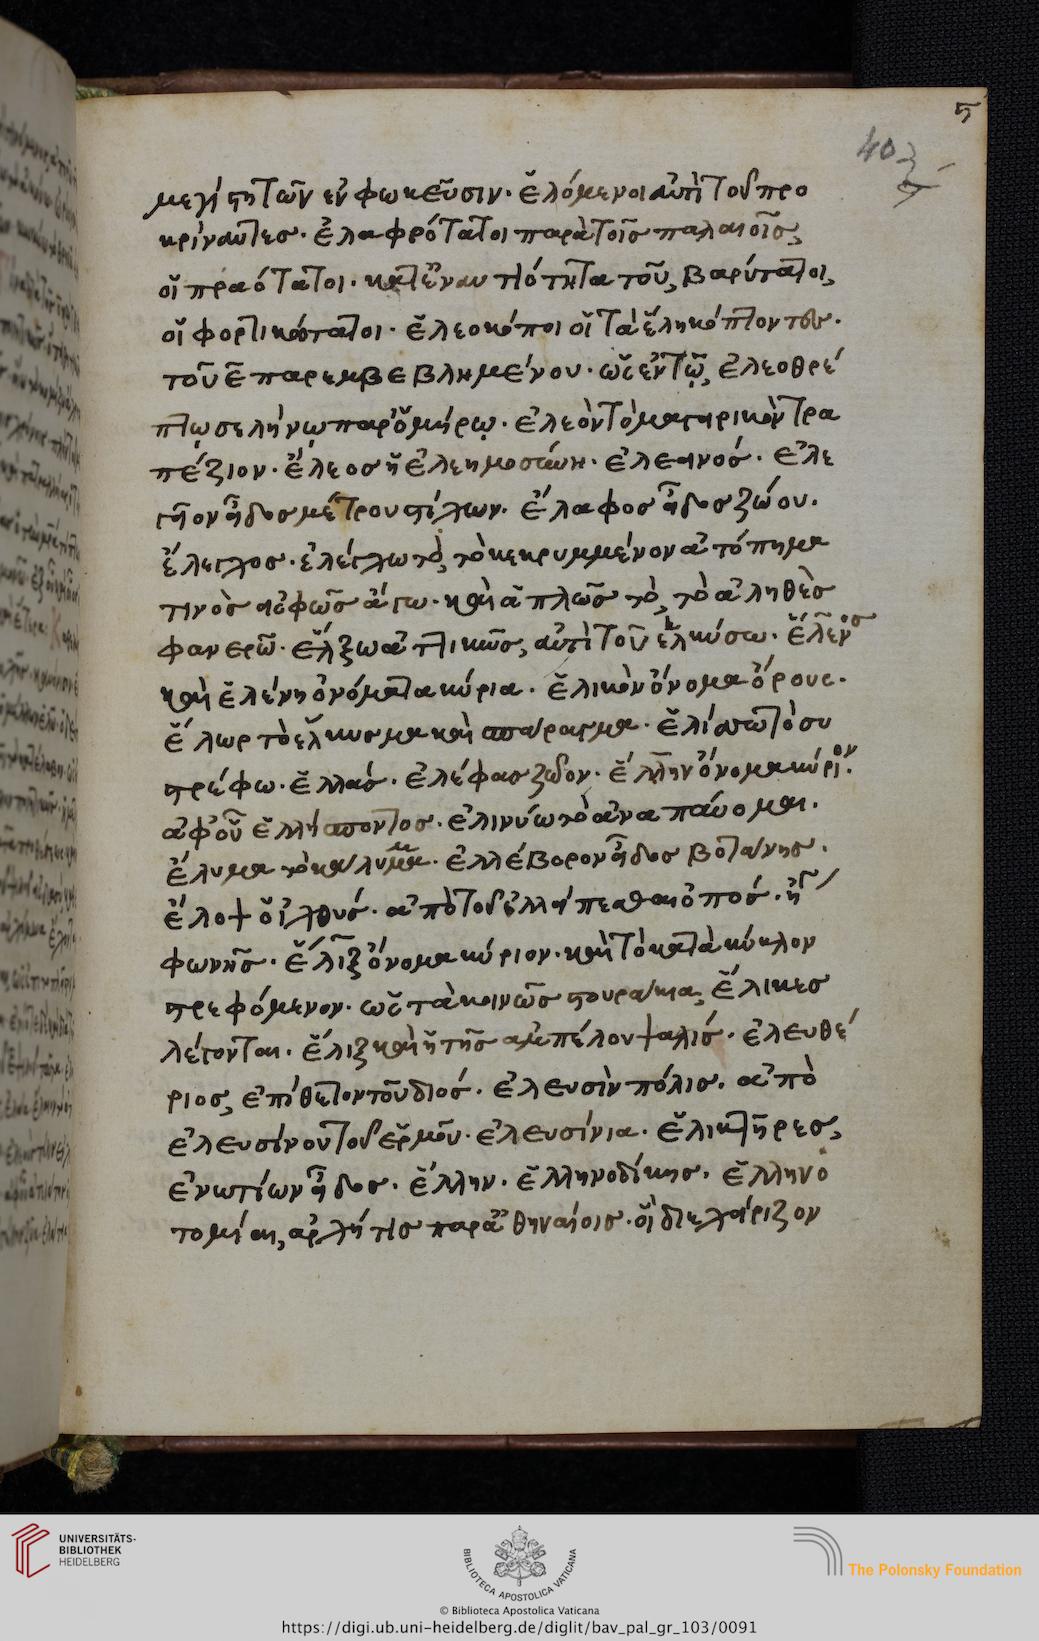 ϛ
40
μεγίστη τῶν ἐν φωκεῦσιν· ἑλόμενοι ἀντὶ τοῦ προ
κρίναντες· ἐλαφρότατοι παρὰ τοῖς παλαιοῖς,
οἱ πραότατοι· κατ' ἐναντιότητα τοῦ, βαρύτατοι,
οἱ φορτικώτατοι· ἐλεοκόποι οἱ τὰ ἕλη κόπτοντες·
τοῦ ε παρεμβεβλημένου· ὡς ἐν τῷ, ἐλεοθρέ
πτῳ σελήνῳ παρ' ὁμήρῳ· ἐλεὸν τὸ μαγειρικὸν τρα
πέζιον· ἔλεος ἡ ἐλεημοσύνη· ἐλεεινός· ἐλε
γῆον εἶδος μέτρου στίχων· ἔλαφος εἶδος ζώου·
ἔλεγχος· ἐλέγχω τὸ, τὸ κεκρυμμένον ἀτόπημα
τινὸς εἰς φῶς ἄγω· καὶ ἁπλῶς τὸ, τὸ ἀληθὲς
φανερῶ· ἕλξω ἀττικῶς, ἀντὶ τοῦ ἑλκύσω· ἕλενος
καὶ ἑλένη ὀνόματα κύρια· ἑλικὼν ὄνομα ὄρους·
ἕλωρ τὸ ἕλκυσμα καὶ σπάραγμα· ἑλίσσω τὸ συ
στρέφω· ἑλλάς· ἐλέφας ζῶον· ἕλλην ὄνομα κύριον·
ἀφ' οὗ ἑλλήσποντος· ἐλινύω τὸ ἀναπαύομαι·
ἔλυμα τὸ κάλυμμα· ἐλλέβορον εἶδος βοτάνης·
ἔλοψ ὁ ἰχθύς· ἀπὸ τοῦ ἐλλείπεσθαι ὀπός· ἤγουν
φωνῆς· ἕλιξ ὄνομα κύριον· καὶ τὸ κατὰ κύκλον
στρεφόμενον· ὡς τὰ κοινῶς γουράκια, ἕλικες
λέγονται· ἕλιξ καὶ ἡ τῆς ἀμπέλου ψαλίς· ἐλευθέ
ριος, ἐπίθετον τοῦ διός· ἐλευσὶν πόλις· ἀπὸ
ἐλευσίνου τοῦ ἑρμοῦ· ἐλευσίνια· ἑλικτῆρες,
ἐνωτίων εἶδος· ἕλλην· ἑλληνοδίκης· ἑλληνο
τομίαι, ἀρχή τις παρὰ ἀθηναίοις· οἳ διεχείριζον
UNIVERSITÄTS-
BIBLIOTHEK
HEIDELBERG
BIBLIOTECA APOSTOLICA VATICANA
The Polonsky Foundation
© Biblioteca Apostolica Vaticana
https://digi.ub.uni-heidelberg.de/diglit/bav_pal_gr_103/0091